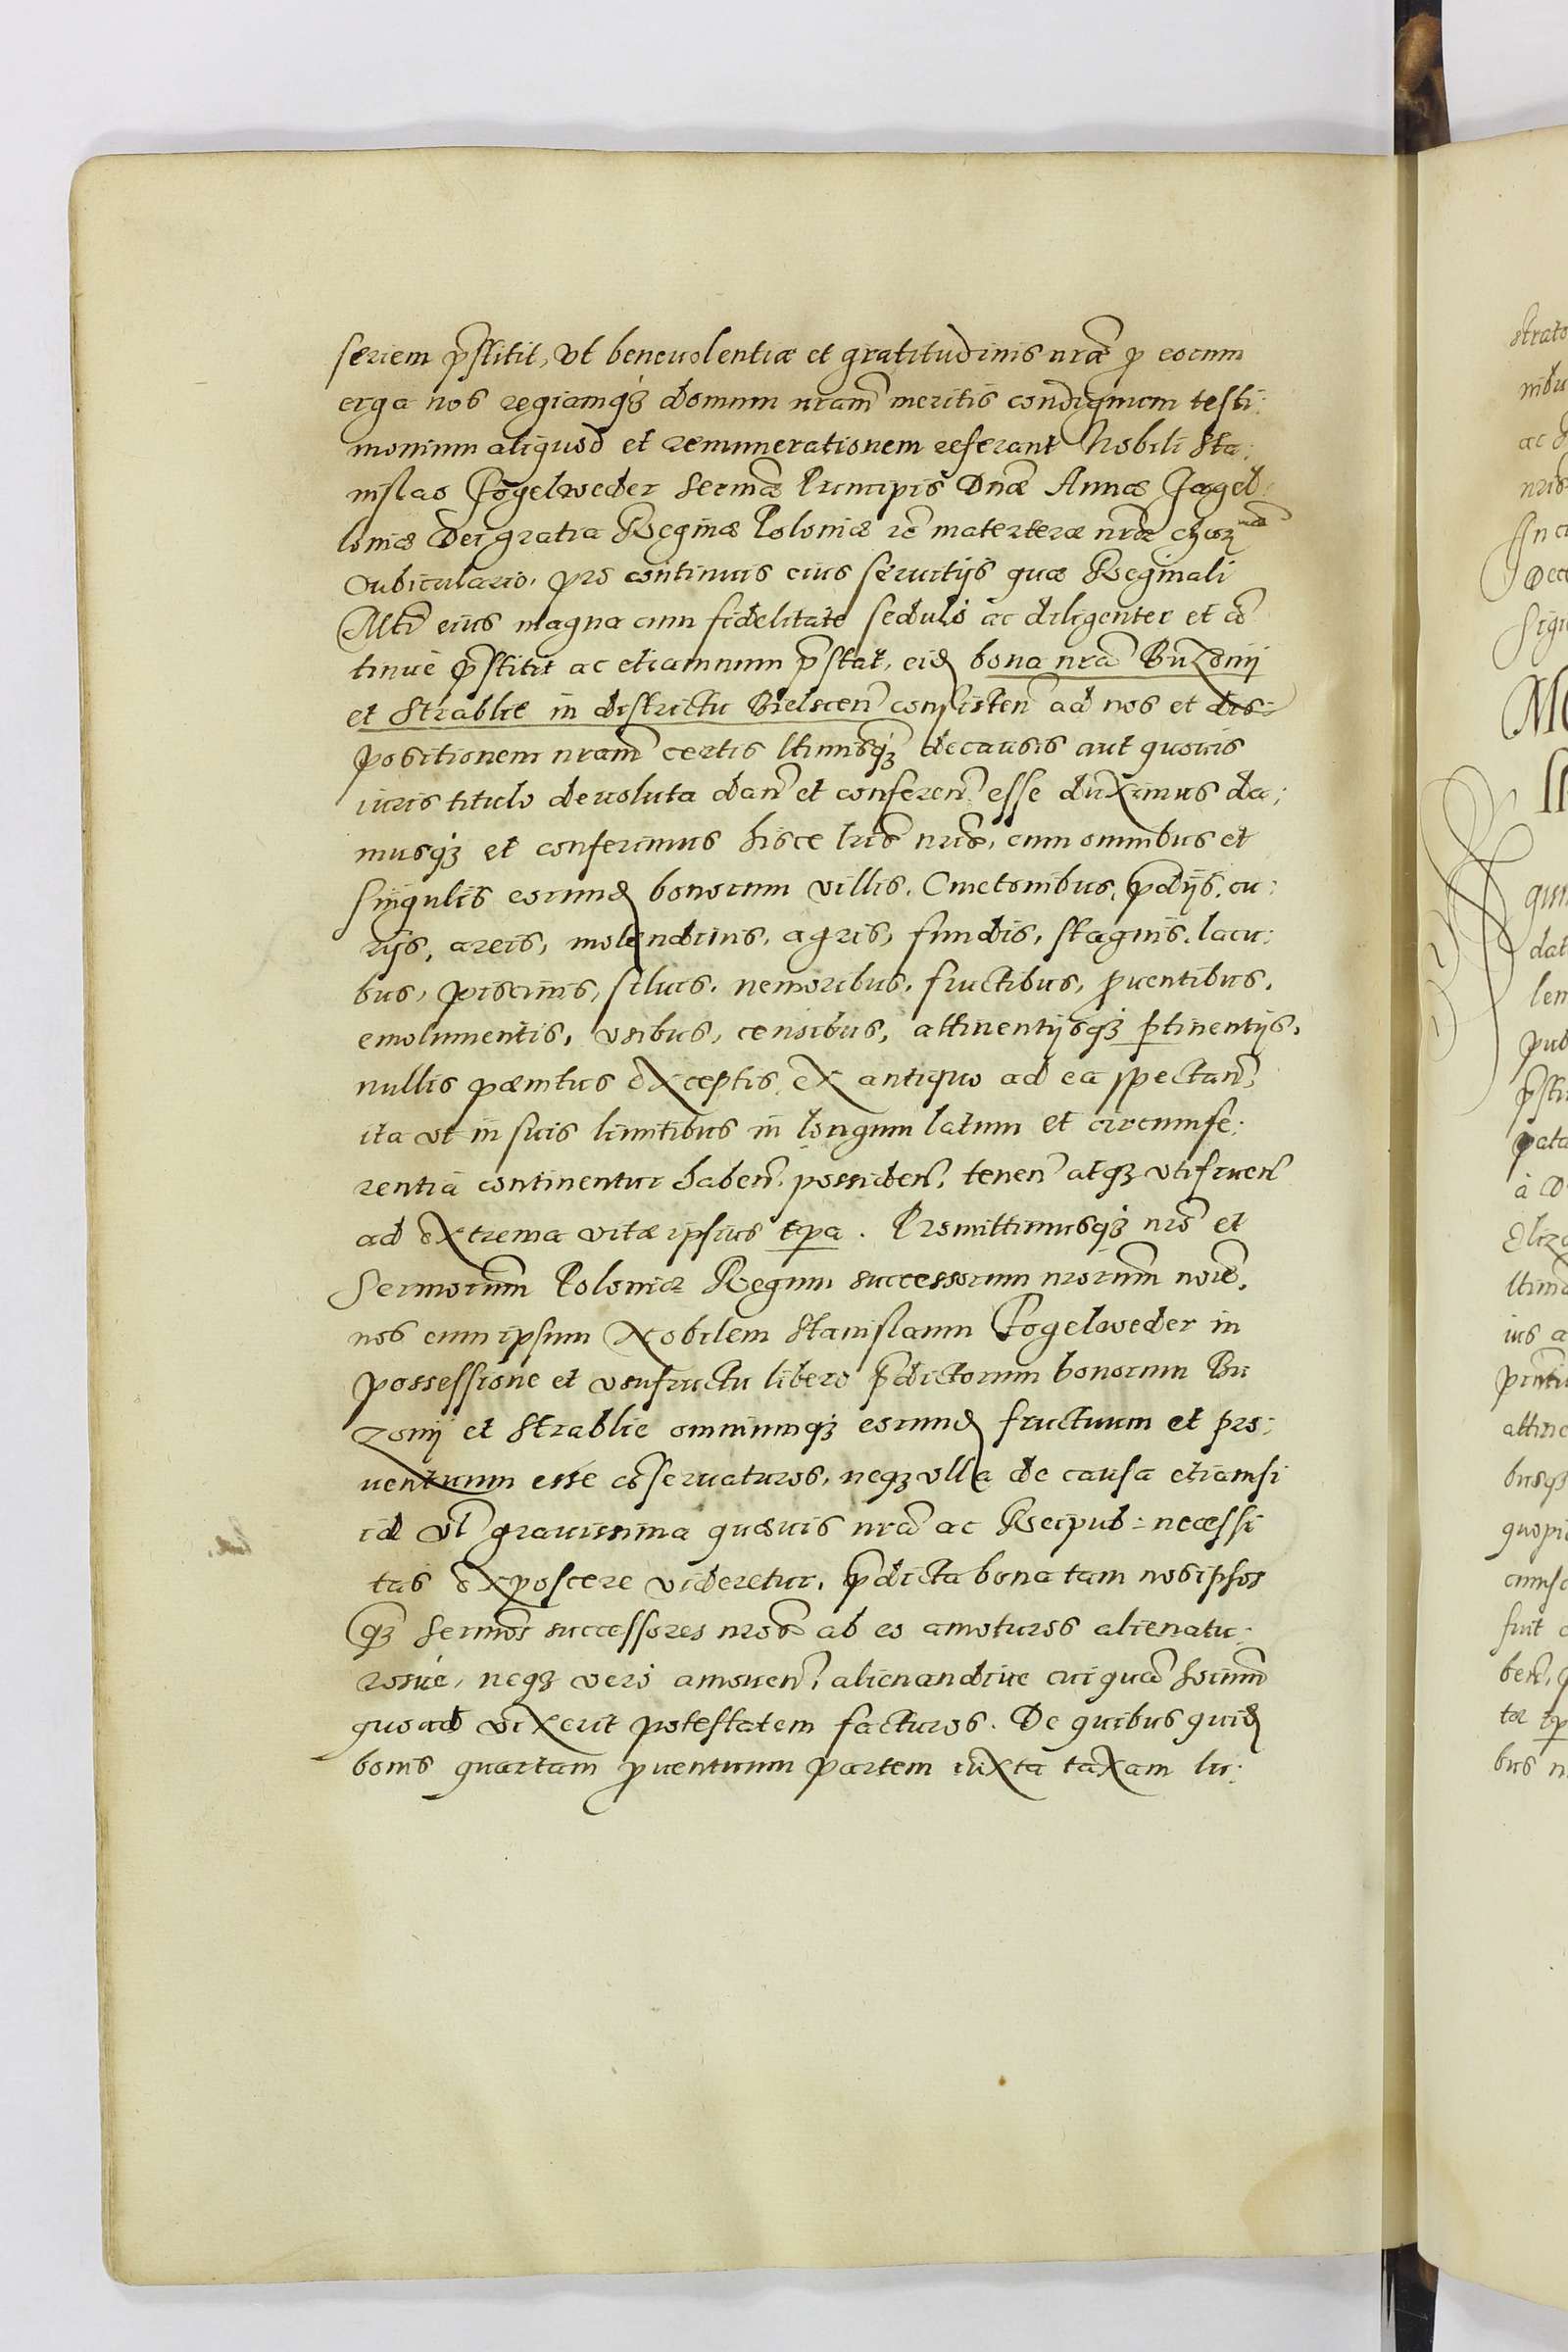 seriem p̄stitit, vt beneuolentiæ et gratitudinis nr̄æ p eorum
erga nos regiamqꝫ domum nram̄ meritis condignum testi:
monium aliquod et remunerationem referant Nobili Sta:
nislao Fogelweder Serm̄æ Principis Dn̄æ Annæ Jagel:
loniæ Dei gratia Reginæ Poloniæ materteræ nr̄æ
Cubiculario, pro continuis eius seruitijs quæ Reginali
Mt̄i eius magna cum fidelitate sedulò ac diligenter et cō
tinuè p̄stitit ac etiamnum p̄stat, eid bona nrā Buzonij
et Strablie in districtu Bielscen̄ consisten̄ ad nos et dis:
positionem nram̄ certis ltimisqꝫ de causis aut quouis
iuris titulo deuoluta dan̄ et conferen̄ esse duximus da:
musqꝫ et conferimus hisce lris̄ nris̄, cum omnibus et
singulis eorund bonorum villis, Cmetonibus, p̄dijs, cu:
rijs, areis, molendinis, agris, fundis, stagnis, lacu:
bus, piscinis, siluis, nemoribus, fructibus, puentibus,
emolumentis, vsibus, censibus, attinentijsqꝫ ptinentijs,
nullis pænitus exceptis, ex antiquo ad ea spectan̄,
ita vt in suis limitibus in longum latum et circumfe:
rentia continentur haben̄, possiden̄, tenen̄ atqꝫ vtifruen̄
ad extrema vitæ ipsius tpa. Promittimusqꝫ nro̅ et
Sermorum̄ Poloniæ Regum successorum nrorum̄ noīe,
nos eum ipsum Nobilem Stanislaum Fogelweder in
possessione et vsufructu libero p̄dictorum bonorum Bu
zonij et Strablie omniumqꝫ eorund fructuum et pro:
uentuum esse cōseruaturos, neqꝫ vlla de causa etiamsi
id vl̄ grauissima quæuis nrā ac Reipub: necessi
tas exposcere videretur, p̄dicta bona tam nos ipsos
qꝫ̄ Sermōs successores nros̄ ab eo amoturos alienatu:
rosue, neqꝫ verò amouen̄, alienandiue cuiquā horum̄
quoad vixerit potestatem facturos. De quibus quid
bonis quartam puentuum partem iuxta taxam lu: